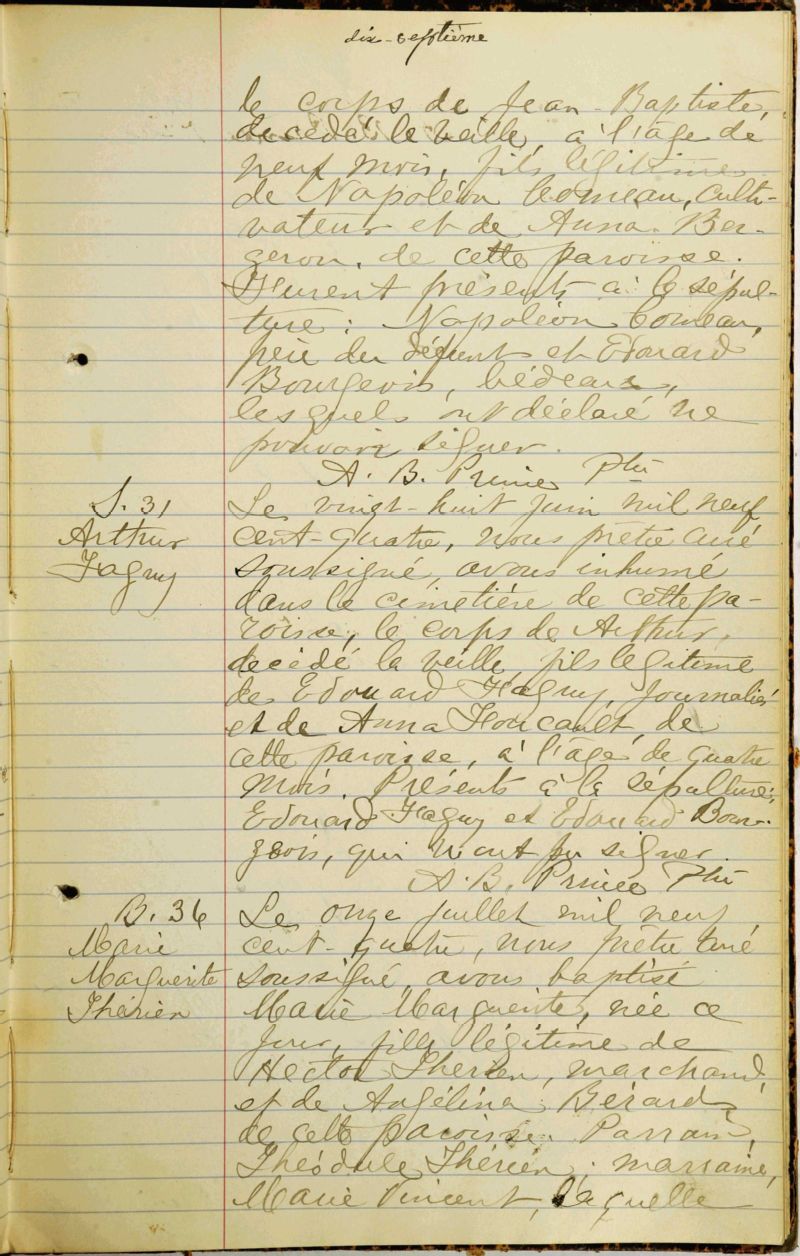 dix-septième
le corps de Jean-Baptiste,
décédé le veille, à l'âge de
neuf mois, fils légitime
de Napoléon Comeau, culti-
vateur et de Anna Ber-
geron, de cette paroisse.
Furent présents à la sépul-
ture: Napoléon Comeau,
père du défunt et Edouard
Bourgeois, bédeau,
lesquels ont déclaré ne
pouvoir signer.
A. B. Prince Ptre
S. 31
Arthur
Fagny
Le vingt-huit juin mil neuf
cent-quatre, nous prêtre curé
soussigné, avons inhumé
dans le cimetière de cette pa-
roisse, le corps de Arthur,
décédé la veille, fils légitime
de Edouard Fagny, journalier
et de Anna Foucault, de
cette paroisse, à l'âge de quatre
mois. Présents à la sépulture:
Edouard Fagny et Edouard Bour-
geois, qui n'ont pu signer.
A. B. Prince Ptre
B. 36
Marie
Marguerite
Thérien
Le onze juillet mil neuf
cent-quatre, nous prêtre curé
soussigné, avons baptisé
Marie Marguerite, née ce
jour, fille légitime de
Hector Therien, marchand,
et de Angélina Bérard,
de cette paroisse. Parrain,
Théodule Thérien; marraine,
Marie Vincent, laquelle